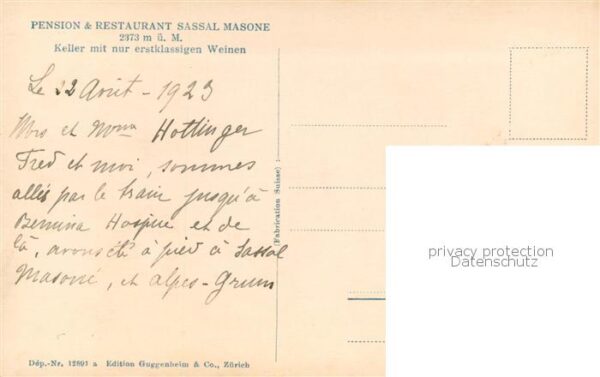 PENSION & RESTAURANT SASSAL MASONE
2373 m ü. M.
Keller mit nur erstklassigen Weinen
Le 22 Août - 1923
Mrs et Mmm Hottinger
Fred et moi, sommes
allés par le train jusqu'à
Bernina Hospice et de
là, avons été à pied à Sassal
Masoné, et alpes-Grum
(Fabrication Suisse)
privacy protection
Datenschutz
Dép.-Nr. 12891 a Edition Guggenheim & Co., Zürich